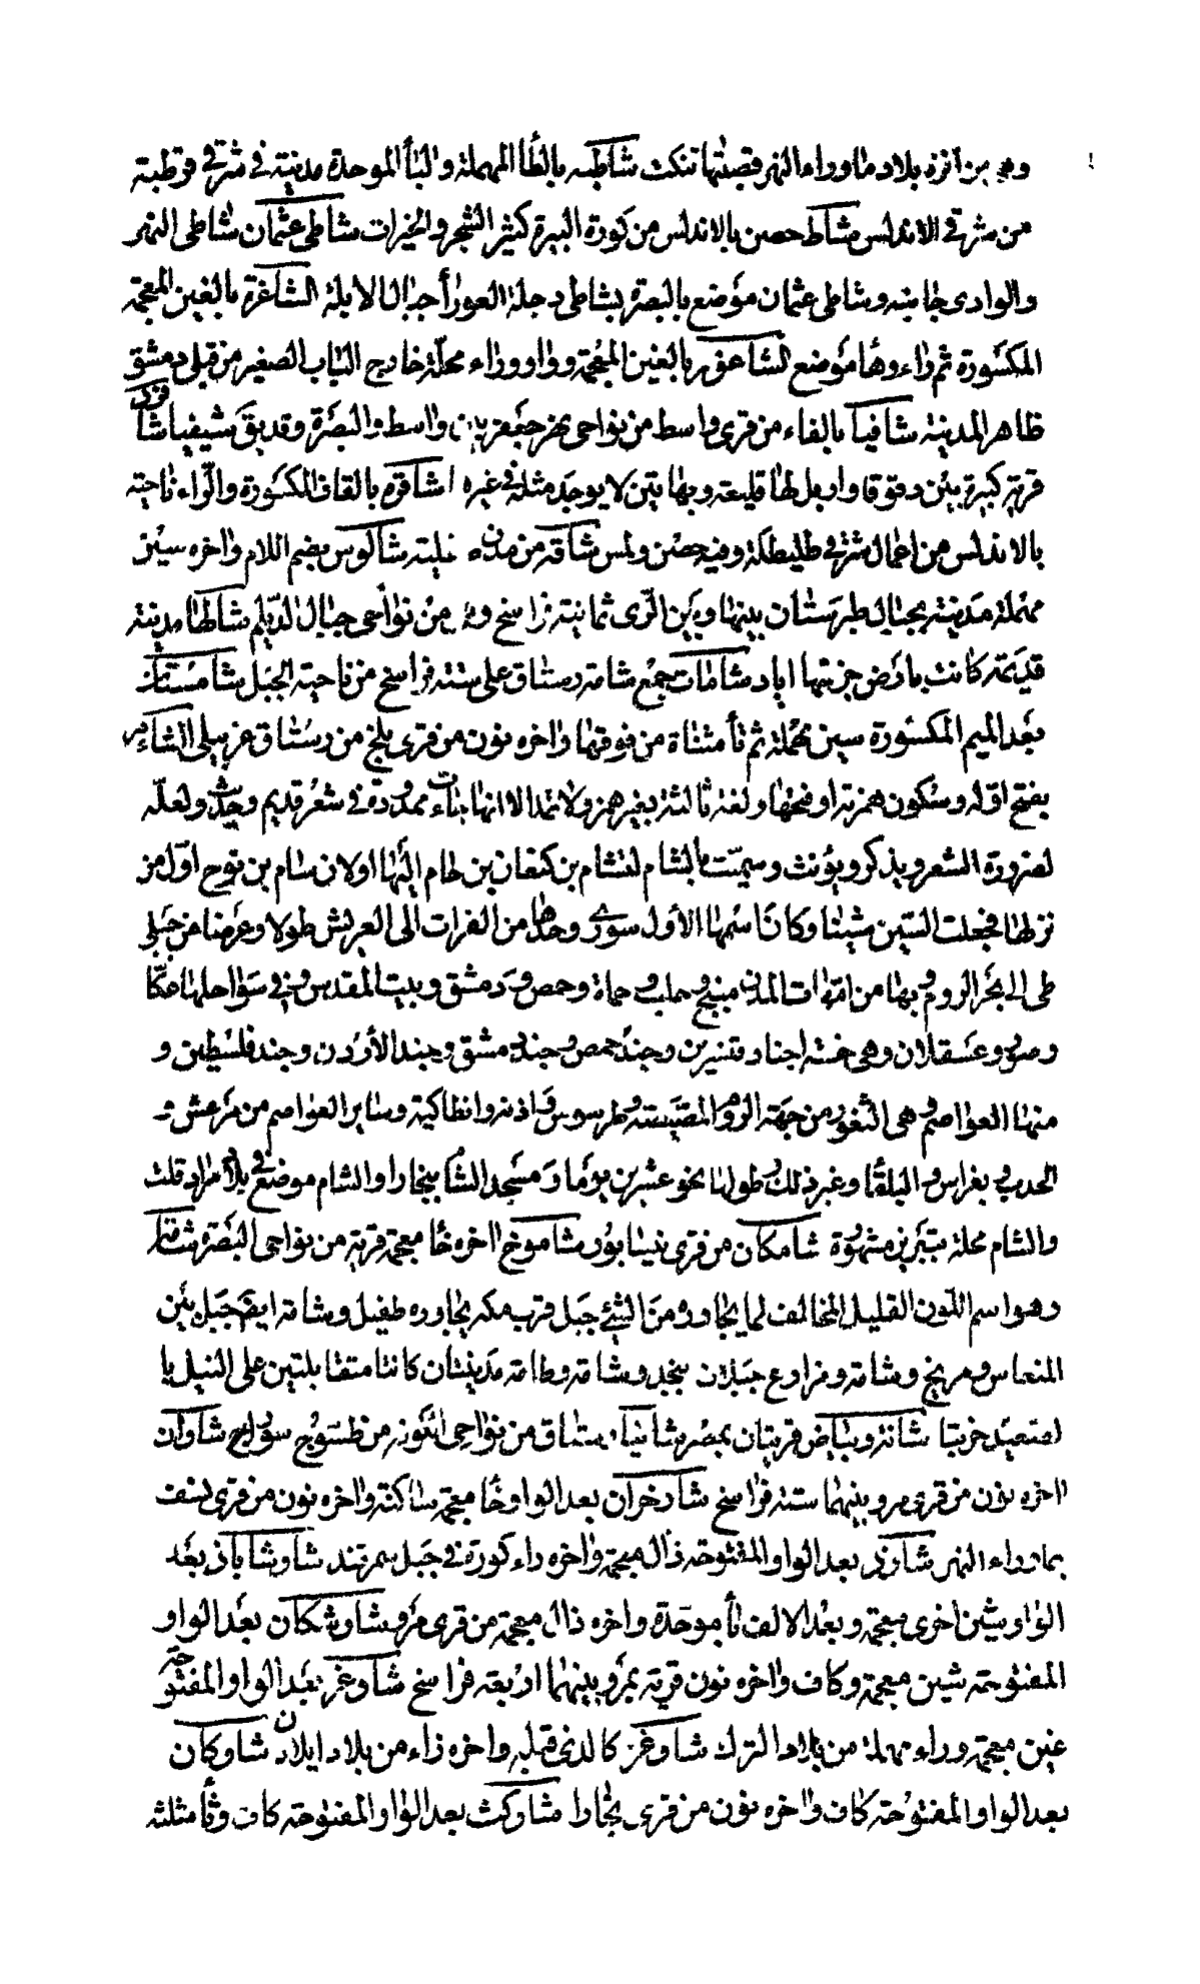 وهي من أنزه بلاد ما وراء النهر قصبتها تنكت شاطبه بالطأ المهملة والبأ الموحدة مدينة في شرقي قرطبة
من شرقي الاندلس شاط حصن بالاندلس من كورة البيرة كثير الشجر والخيرات شاطى عثمان شاطى النهر
والوادى جانبه وشاطى عثمان موضع بالبصرة بشاطى دجلة العورأ حيال الابلة الشاغرة بالغين المعجمة
المكسورة ثم راء وهأ موضع الشاغور بالغين المعجمة وواو وراء محلة خارج الباب الصغير من قبلي دمشق
ظاهر المدينة شافيا بالفاء من قرى واسط من نواحى نهر جعفر بين واسط والبصرة وقد يقَ شيفيا شاقرد
قرية كبيرة بين دقوقا واربل لها قليعة وبها تين لا يوجد مثله في غيره شاقره بالقاف المكسورة والراء ناحية
بالاندلس من اعمال شرقي طليطلة وفيه حصن ولمس شاقه من مدن صقلية شالوس بضم اللام واخره سين
مهملة مدينة بجبال طبرستان بينها وبين الرى ثمانية فراسخ وهي من نواحى جبال الديلم شالها مدينة
قديمة كانت بارض جزيتها اياد شامات جمع شامة رستاق على ستة فراسخ من ناحية الجبل شامستان
بعد الميم المكسورة سين مهملة ثم تأ مثناة من فوقها واخره نون من قرى بلخ من رستاق غربيلى الشام
بفتح اوله وسكون همزته او فتحها ولغة ثالثة بغير همز ولا تمد الا انها جأت ممدودة في شعر قديم وحديث ولعله
لضرورة الشعر ويذكر ويؤنث وسميت بالشام لتشام بن كنعان بن حام اليها او لان سام بن نوح اول من
نزلها فجعلت السين شينا وكان اسمها الأول سورى وحدها من الفرات الى العريش طولا وعرضا من جبلي
طى الى بحر الروم وبها من امهات المدن منبج وحلب وحماة وحمص ودمشق وبيت المقدس وفي سواحلها عكا
وصور وعسقلان وهى خمسة اجناد قنسرين وجند حمص وجند دمشق وجند الأردن وجند فلسطين و
منها العواصم وهى الثغور من جهة الروم المصيصة وطرسوس واذنة وانطاكية وساير العواصم من مرعش و
الحدث وبغراس والبلقأ وغير ذلك وطولها نحو عشرين يوما ومسجد الشام ببخارا والشام موضع في بلاد مراد قلت
والشام محلة بتبريز مشهورة شامكان من قرى نيسابور شاموخ اخره خأ معجمة قرية من نواحى البصرة شامة
وهو اسم اللون القليل المخالف لما يجاوره من الشيئ جبل قرب مكه يجاوره طفيل وشامة ايضَ جبل بين
النعاس ومربخ وشامة وفراوع جبلان بنجد وشامة وطامة مدينتان كانتا متقابلتين على النيل با
لصعيد خربتا شانة وبياض قريتان بمصر شانيا رستاق من نواحى الكوفة من طسوج سورا شاوان
اخره نون من قرى مرو بينهما ستة فراسخ شاوخران بعد الواو خأ معجمة ساكنة واخره نون من قرى نسف
بما وراء النهر شاوذر بعد الواو المفتوحة ذال معجمة واخره راء كورة في جبل سمرقند شاوشاباذ بعد
الواو شين اخرى معجمة وبعد الالف بأ موحدة واخره ذال معجمة من قرى مرو شاوشكان بعد الواو
المفتوحة شين معجمة وكاف واخره نون قرية بمرو بينهما اربعة فراسخ شاوغر بعد الواو المفتوحة
غين معجمة وراء مهملة من بلاد الترك شاوغز كالذى قبله واخره زاء من بلاد ايلاق شاوكان
بعد الواو المفتوحة كاف واخره نون من قرى بخارا شاوكث بعد الواو المفتوحة كاف وثأ مثلثة